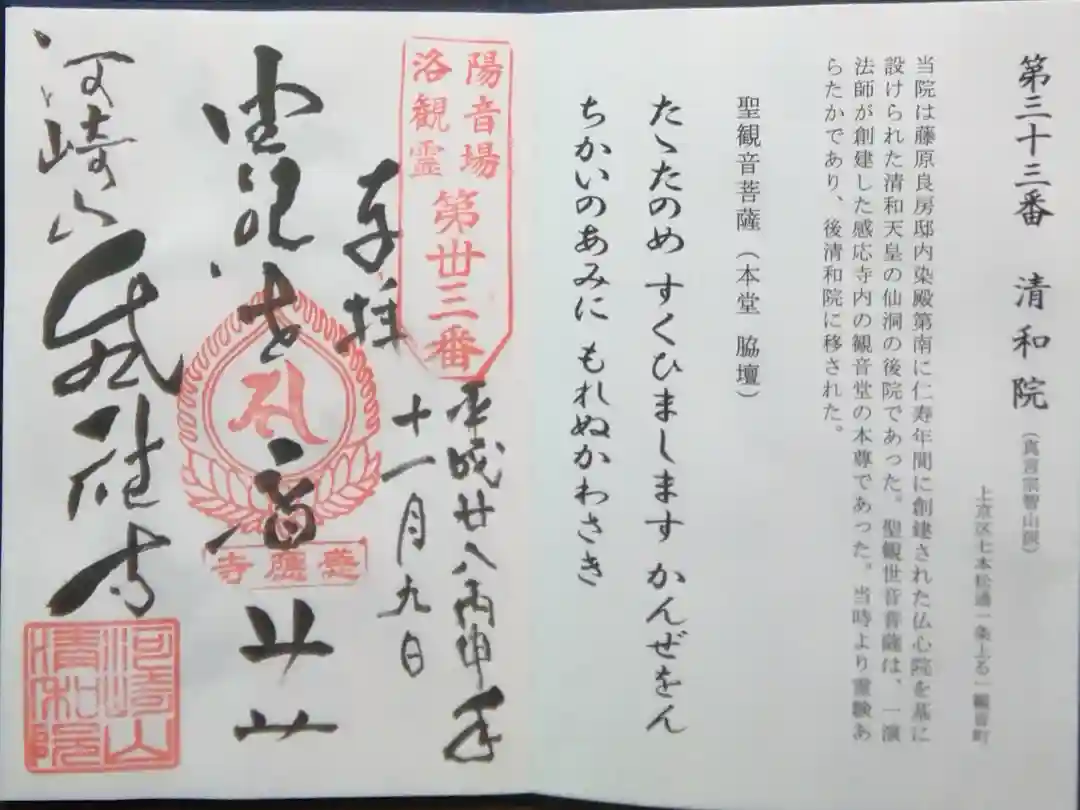 第三十三番 清和院
(真言宗智山派)
上京区七本松通一条上る一観音町
当院は藤原良房邸内染殿第南に仁寿年間に創建された仏心院を基に
設けられた清和天皇の仙洞の後院であった。聖観世音菩薩は、一演
法師が創建した感応寺内の観音堂の本尊であった。当時より霊験あ
らたかであり、後清和院に移された。
聖観音菩薩(本堂 脇壇)
たゝたのめ すくひまします かんぜをん
ちかいのあみに もれぬかわさき
洛陽
観音
霊場
第丗三番
奉拝
平成廿八丙申年
十一月九日
感應寺
河崎山
感應寺
河崎山
清和院